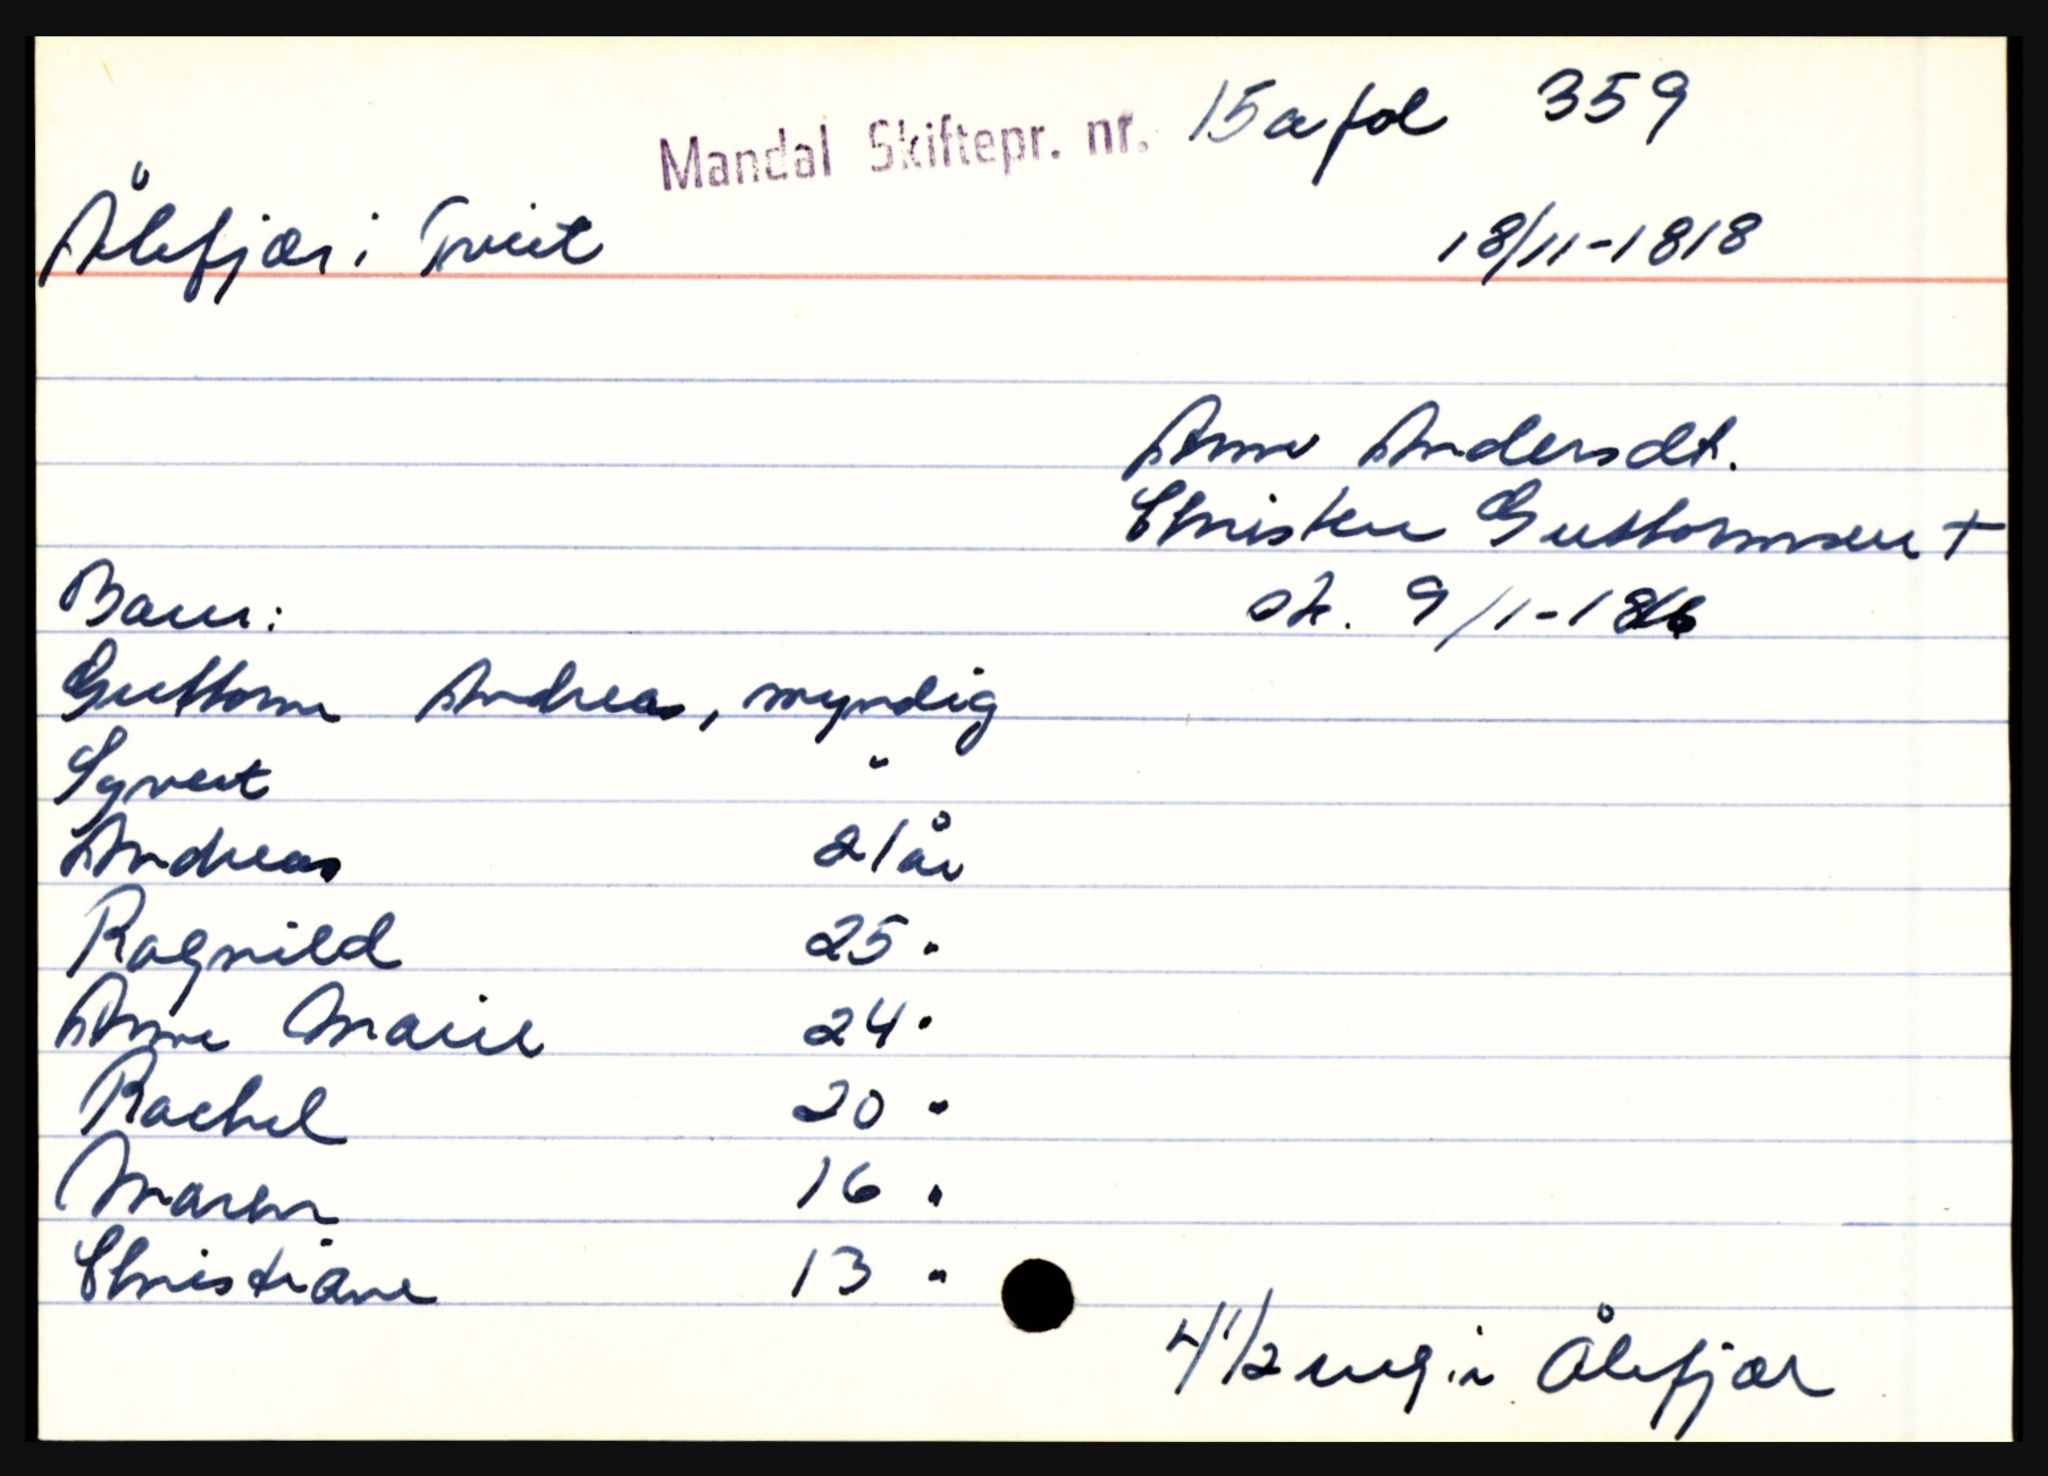 Mandal Skiftepr. nr. 15a fol 359
Ålefjær i Tveit 18/11-1818
Anne Andersdt.
Christen Guttormsen +
Barn: sk. 9/1-1816
Guttorm Andreas, myndig
Syvert "
Andreas 21 år
Ragnild 25 "
Anne Marie 24 "
Rachel 20 "
Maren 16 "
Christiane 13 "
4 1/2 eng. i Ålefjær